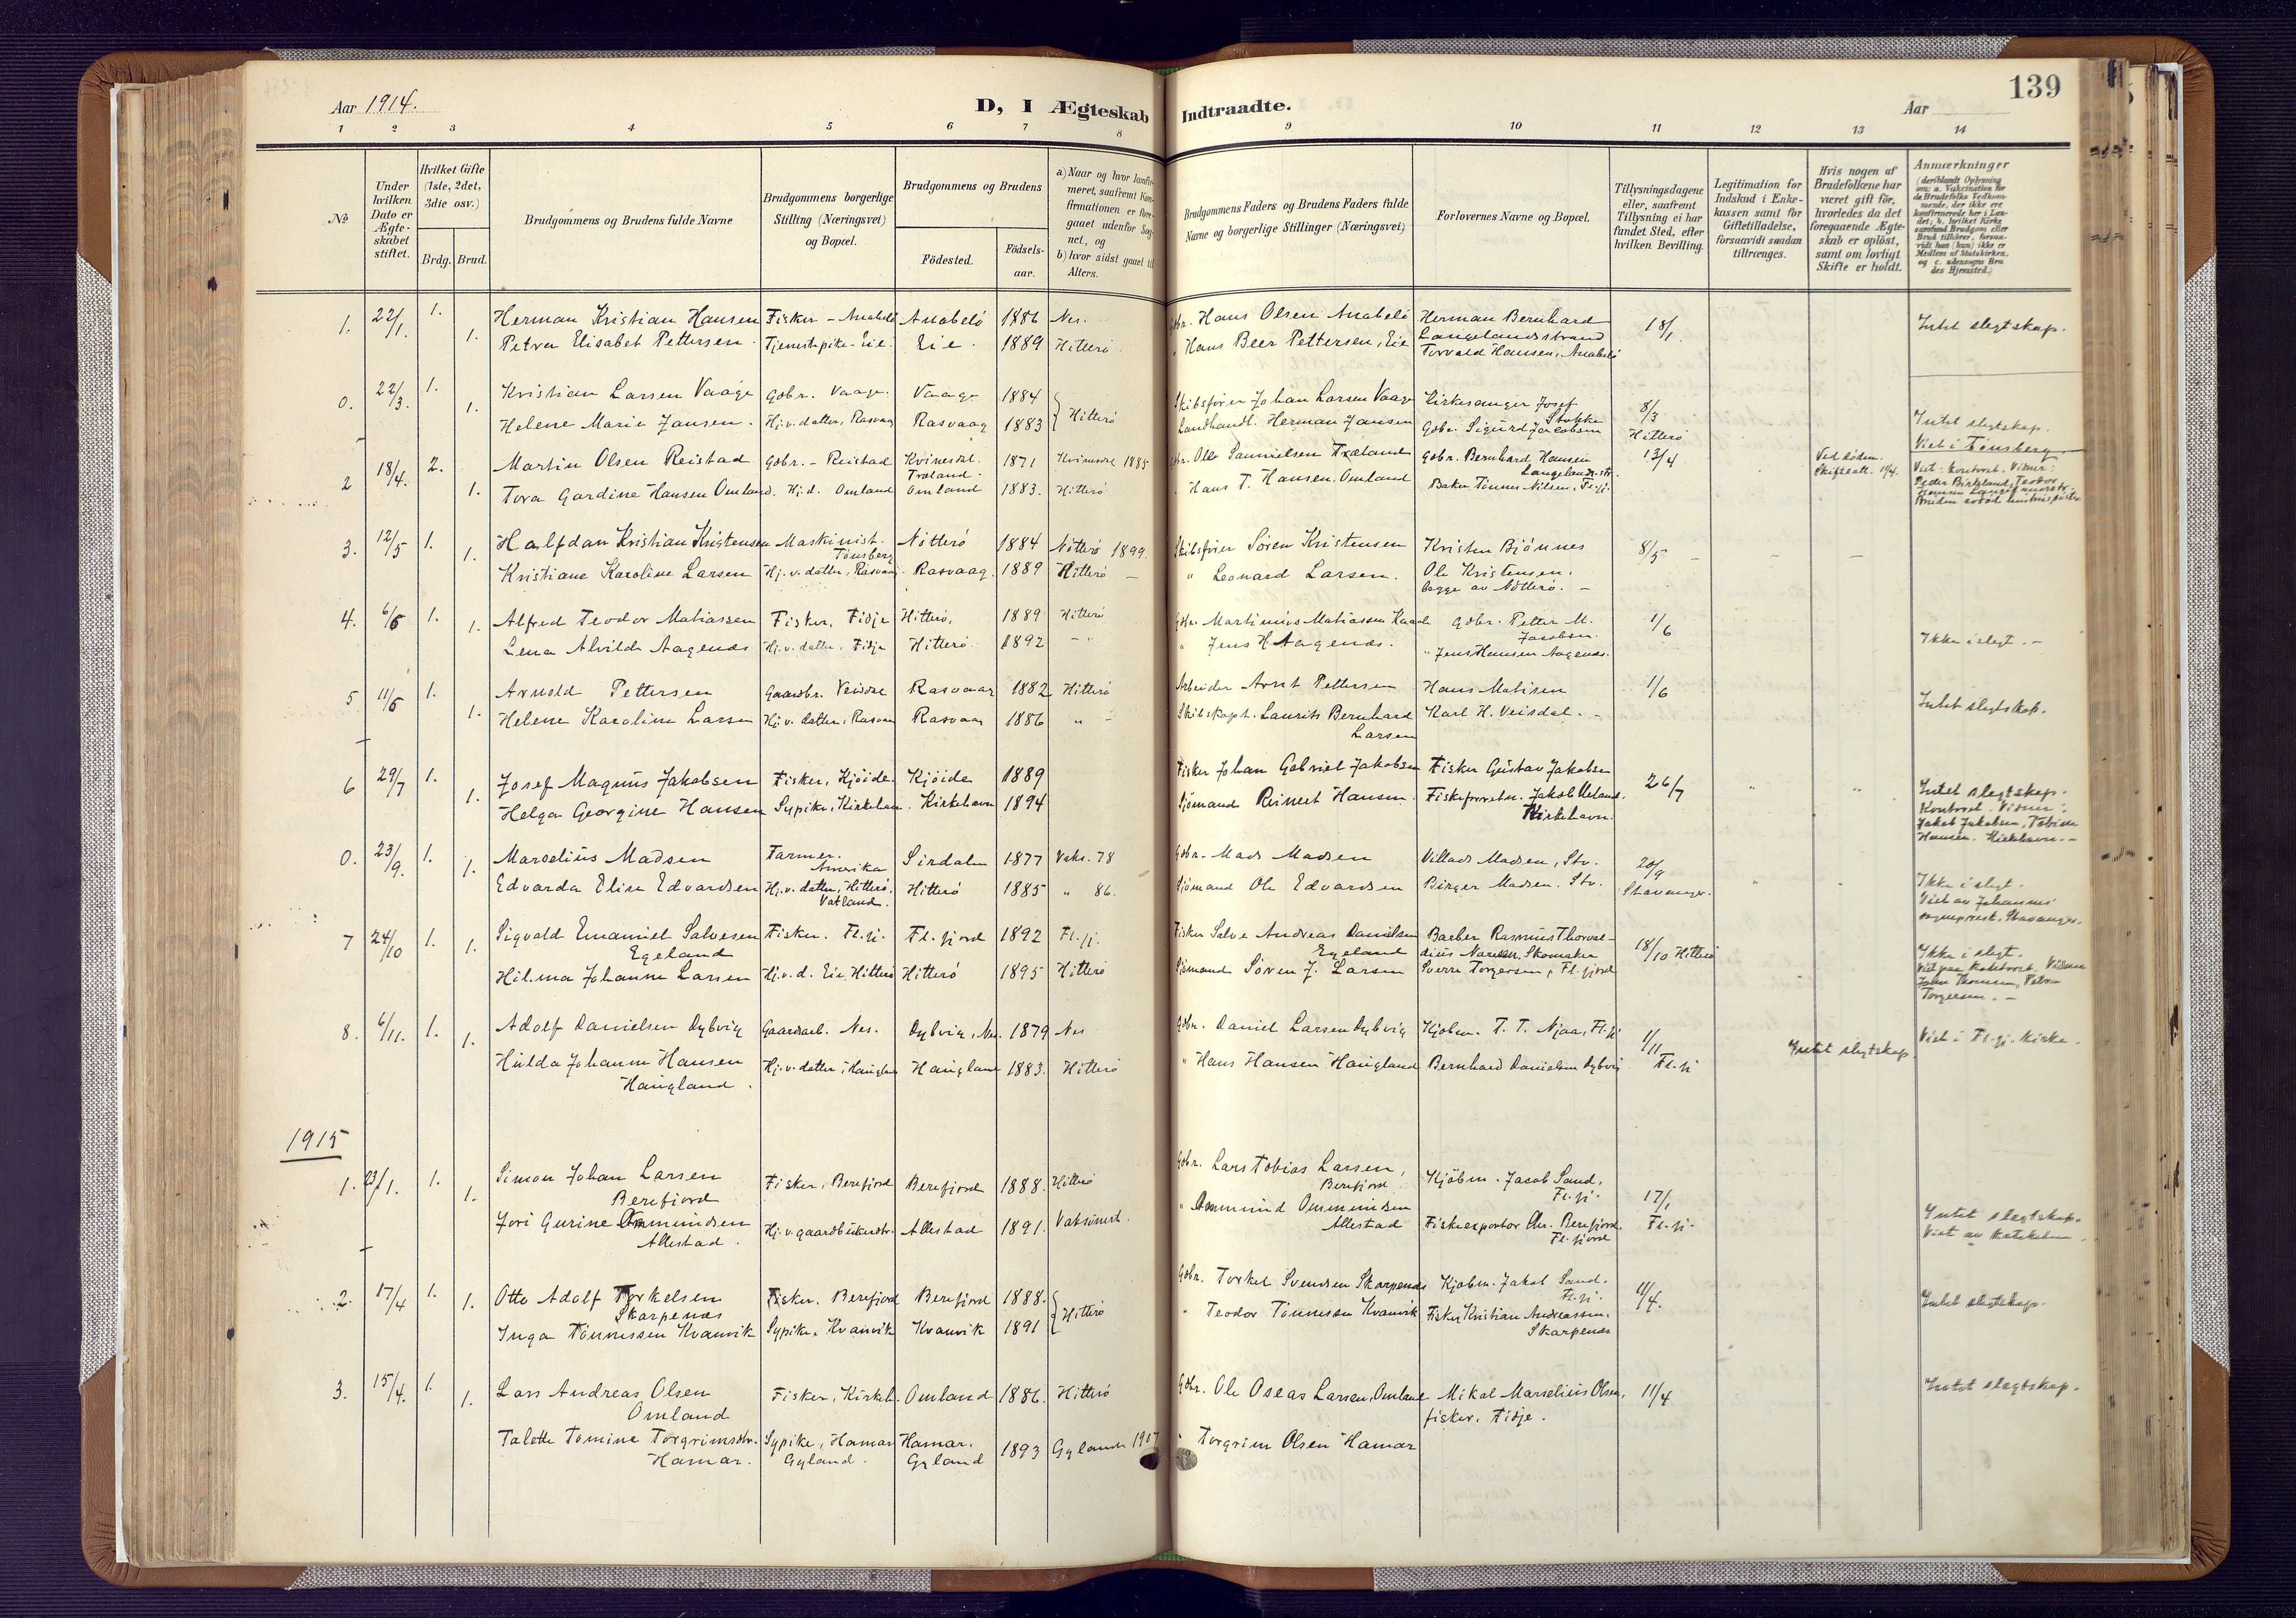 139
Aar 1914.
D, I Ægteskab
Indtraadte.
Aar
1 2 3 4 5 6 7 8 9 10 11 12 13 14
№
Under hvilken Dato er Ægte-skabet stiftet.
Hvilket Gifte (1ste, 2det, 3die osv.)
Brdg. Brud.
Brudgommens og Brudens fulde Navne
Brudgommens borgerlige Stilling (Næringsvei) og Bopæl.
Brudgommens og Brudens
Födested.
Födsels-aar.
a) Naar og hvor konfir-meret, saafremt Kon-firmationen er fore-gaaet udenfor Sog-net, og
b) hvor sidst gaaet til Alters.
Brudgommens Faders og Brudens Faders fulde Navne og borgerlige Stillinger (Næringsvei)
Forlovernes Navne og Bopæl.
Tillysningsdagene eller, saafremt Tillysning ei har fundet Sted, efter hvilken Bevilling.
Legitimation for Indskud i Enke-kassen samt for Giftetilladelse, forsaavidt saadan tiltrænges.
Hvis nogen af Brudefolkene har været gift för, hvorledes da det foregaaende Ægte-skab er oplöst, samt om lovligt Skifte er holdt.
Anmærkninger
(deriblandt Oplysning om: a. Vaksination for de Brudefolks Vedkom-mende, der ikke ere konfirmerede her i Lan-det; b. hvilket Kirke samfund Brudgom eller Brud tilhörer, forsaa-vidt han (hun) ikke er Medlem af Statskirken, og c. udensogns Bru-des Hjemsted.)
1. 22/1. 1. Herman Kristian Hansen Fisker - Anabelö Anabelö 1886 Nes. Gbr. Hans Olsen Anabelö Herman Bernhard Langelandsstrand 18/1 Intet slegtskap.
1. Petra Elisabet Pettersen. Tjenestepike - Eie. Eie. 1889 Hitterö. " Hans Beer Pettersen, Eie Torvald Hansen, Anabelö
0. 22/3. 1. Kristian Larsen Vaage Gbr. Vaage. Vaage 1884 Hitterö Skibsförer Johan Larsen Vaage Kirkesanger Josef Stokke 8/3 Hitterö Intet slegtskap.
1. Helene Marie Jansen. Hj.v. datter, Rasvaag Rasvaag 1883 Landhandl. Herman Jansen Gbr. Sigurd Jacobsen Viet i Tönsberg
2 18/4. 2. Martin Olsen Reistad Gbr. - Reistad Kvinesdal. Træland. 1871 Kvinesdal 1885 Gbr. Ole Samuelsen Træland Gbr. Bernhard Hansen Langelandsstr. 13/4 Ved döden. Skifteatt. 14/4. Viet: kontoret. Vidner: Peder Birkeland, Teodor
1. Tora Gardine Hansen Omland. Hj.d. Omland Omland 1883. Hitterö " Hans T. Hansen, Omland Baker Tönnes Nilsen, Fl.fj.
3. 12/5 1. Halfdan Kristian Kristensen Maskinist. Tönsberg Nötterö 1884 Nötterö 1899. Skibsförer Sören Kristensen Kristen Bjönnes 8/5 - - -
1. Kristiane Karoline Larsen Hj.v. datter, Rasvaag Rasvaag. 1889 Hitterö - " Leonard Larsen. Ole Kristensen. begge av Nötterö. -
4. 6/6 1. Alfred Teodor Matiassen Fisker, Fidje Hitterö, 1889 Hitterö Gbr. Martinius Matiassen Gbr. Petter M. Jacobsen. 1/6
1. Lena Alvilde Aagenæs Hj.v. datter. Fidje Hitterö 1892 - " " Jens H. Aagenæs. " Jens Hansen Aagenæs. Ikke i slegt. -
5 11/6 1. Arnold Pettersen Gaardbr. Veisdal Rasvaag 1882 Hitterö Arbeider Arnt Pettersen Hans Matisen 1/6
1. Helene Karoline Larsen Hj.v. datter, Rasvaag Rasvaag 1886 " - Skibskapt. Laurits Bernhard Larsen Karl H. Veisdal. - Intet slegtskap.
6 29/7 1. Josef Magnus Jakobsen Fisker, Kjöide. Kjöide 1889 Fisker Johan Gabriel Jakobsen Fisker Gustav Jakobsen 26/7 " " Intet slegtskap. Kontoret. Vidner:
1. Helga Georgine Hansen Sypike, Kirkehavn. Kirkehavn 1894 Sjömand Reinert Hansen. Fiskeforretn. Jakob Ueland. Kirkehavn. Jakob Jakobsen, Tobias Hansen. Kirkehavn. -
0. 23/9. 1. Marselius Madsen Farmer. Amerika Sirdalen 1877 Vaks. 78 Gbr. Mads Madsen Villads Madsen, Stv. 20/9 Stavanger. Ikke i slegt.
1. Edvarda Elisa Edvardsen Hj.v. datter, Hitterö. Vatland. Hitterö 1885 " 86. Sjömand Ole Edvardsen Birger Madsen. Stv. Viet av Johannes sogneprest, Stavanger.
7 24/10 1. Sigvald Emanuel Salvesen Egeland Fisker. Fl.fj. Fl.fjord 1892 Fl.fj. Fisker Salve Andreas Danielsen Egeland Barber Rasmus Thorval- 18/10 Hitterö Ikke i slegt.
1. Hilma Johanne Larsen Hj.v.d. Eie, Hitterö Hitterö 1895 Hitterö Sjömand Sören J. Larsen Sverre Torgersen, Fl.fjord Viet paa kontoret. Vidner John Thomsen, Petra Torgersen. -
8. 6/11. 1. Adolf Danielsen Dybvig Gaardarb. Nes. Dybvig, Nes. 1879 Nes Gbr. Daniel Larsen Dybvig Kjöbm. T. T. Njaa, Fl.fj 1/11 Fl.fj Intet slegtskap. Viet i Fl.fj. Kirke.
1. Hulda Johanne Hansen Haugland. Hj.v. datter, Haugland Haugland 1883. Hitterö " Hans Hansen Haugland Bernhard Danielsen Dybvig
1915
1. 23/1. 1. Simon Johan Larsen Berefjord Fisker, Berefjord Berefjord 1888. Hitterö Gbr. Lars Tobias Larsen, Berefjord Kjöbm. Jacob Sand, Fl.fj. 17/1 Fl.fj.
1. Jori Gurine Ommundsen Allestad. Hj.v. gaardbrukerdtr. Allestad 1891. Vaksinert. " Ommund Ommundsen Allestad Fiskeexportör Chr. Berefjord. Fl.fjord Intet slegtskap. Viet av
2. 17/4 1. Otto Adolf Torkelsen Skarpenæs Fisker. Berefjord Berefjord 1888. Hitterö Gbr. Torkel Svendsen Skarpenæs Kjöbm. Jakob Sand. Fl.fj. 11/4. Intet slegtskap.
1. Inga Tönnessen Kvanvik Sypike, Kvanvik Kvanvik 1891 " Teodor Tönnessen Kvanvik Fisker Kristian Andreassen. Skarpenæs
3. 15/4. 1. Lars Andreas Olsen Omland Fisker, Kirkeh. Omland 1886. Hitterö Gbr. Ole Oseas Larsen, Omland Mikal Marselius Olsen, fisker. Fidje. 11/4 Intet slegtskap.
1. Talette Tomine Torgrimsdtr. Hamar. Sypike, Hamar Gyland. Hamar. Gyland 1893 Gyland 1907 " Torgrim Olsen Hamar